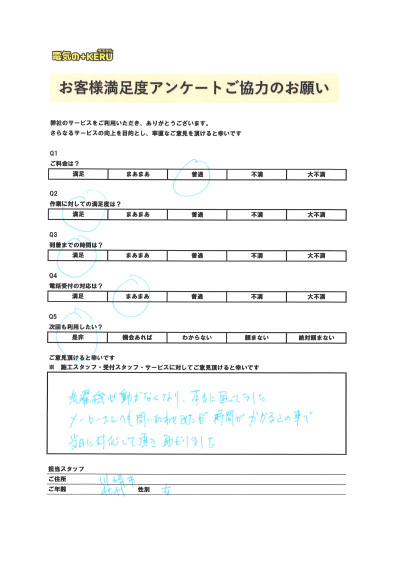 電気の+KERU
お客様満足度アンケートご協力のお願い
弊社のサービスをご利用いただき、ありがとうございます。
さらなるサービスの向上を目的とし、率直なご意見を頂けると幸いです
Q1
ご料金は？
満足 まあまあ 普通 不満 大不満
Q2
作業に対しての満足度は？
満足 まあまあ 普通 不満 大不満
Q3
到着までの時間は？
満足 まあまあ 普通 不満 大不満
Q4
電話受付の対応は？
満足 まあまあ 普通 不満 大不満
Q5
次回も利用したい？
是非 機会あれば わからない 頼まない 絶対頼まない
ご意見頂けると幸いです
※ 施工スタッフ・受付スタッフ・サービスに対してご意見頂けると幸いです
洗濯機が動かなくなり、本当に困ってました
メーカーさんへも問い合わせましたが 時間がかかるとの事で
当日に対応して頂き 助かりました
担当スタッフ
ご住所 川崎市
ご年齢 代 性別 女